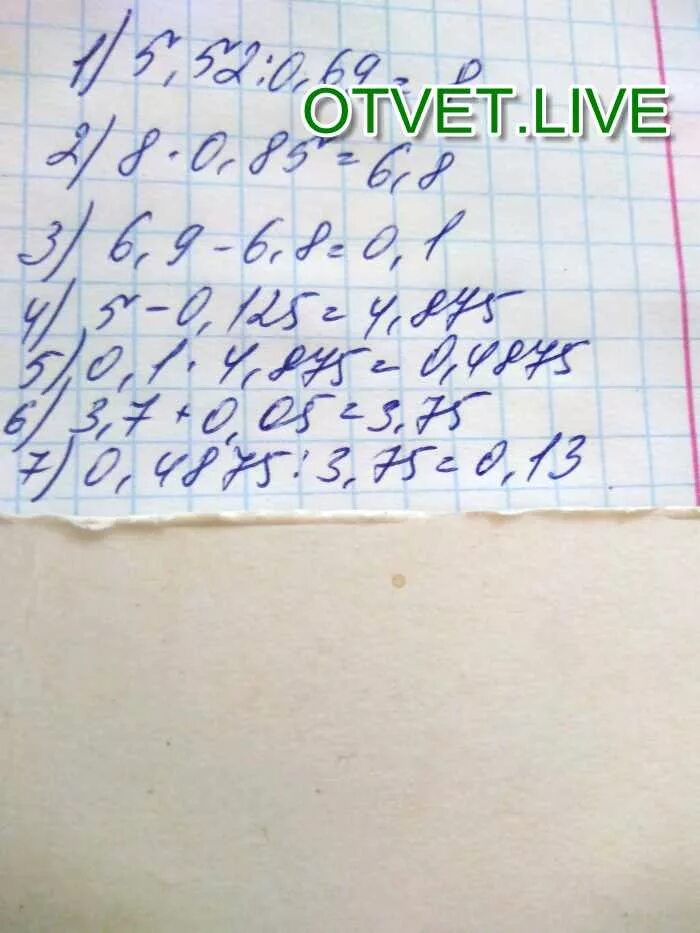 1) 5,52:0,69= 8
OTVET.LIVE
2) 8·0,85=6,8
3) 6,9-6,8=0,1
4) 5-0,125=4,875
5) 0,1·4,875=0,4875
6) 3,7+0,05=3,75
7) 0,4875:3,75=0,13